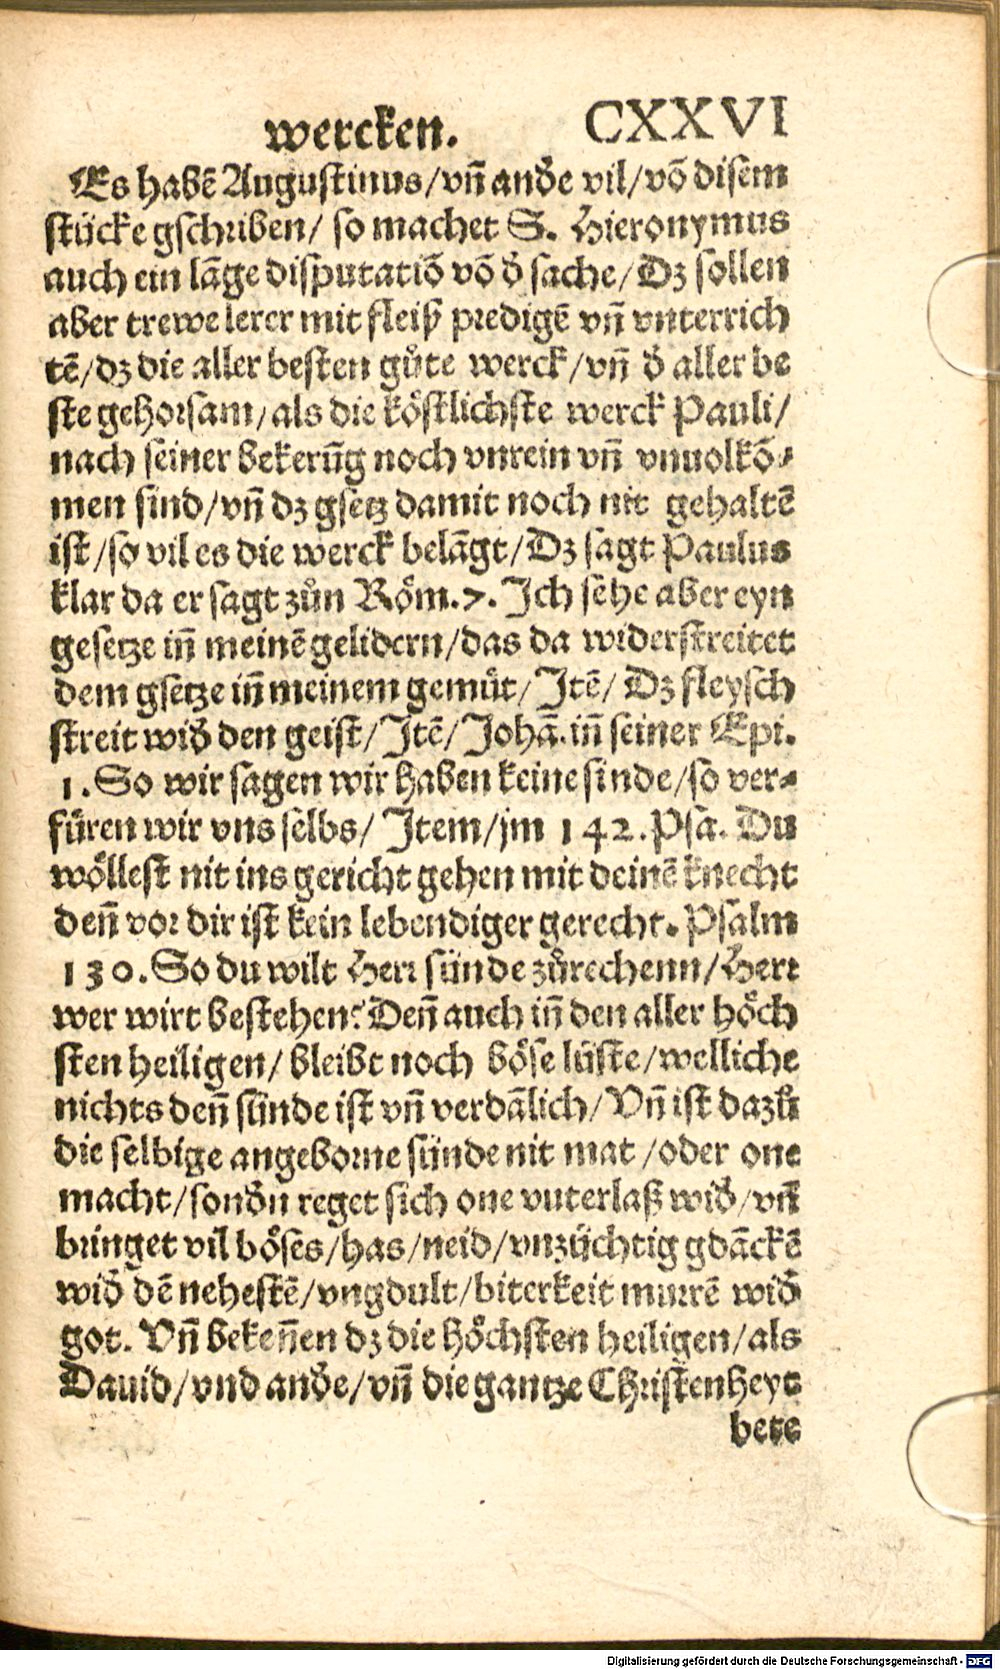 wercken. CXXVI
Es habē Augustinus/vñ andͤe vil/võ disem
stücke gschriben/ so machet S. Hieronymus
auch ein lāge disputatiō võ dͤ sache/ Dz sollen
aber trewe lerer mit fleiß predigē vñ vnterrich
tē/dz die aller besten gůte werck/vñ dͤ aller be
ste gehorsam/als die köstlichste werck Pauli/
nach seiner bekerūg noch vnrein vñ vnuolkō-
men sind/vñ dz gsetz damit noch nit gehaltē
ist/so vil es die werck belāgt/Dz sagt Paulus
klar da er sagt zůn Röm.7. Ich sehe aber eyn
gesetze iñ meinē gelidern/das da widerstreitet
dem gsetze iñ meinem gemüt/ Itē/ Dz fleysch
streit widͤ den geist/ Itē/ Johā. iñ seiner Epi.
1. So wir sagen wir haben keine sinde/so ver-
füren wir vns selbs/ Item/jm 142. Psa. Du
wöllest nit ins gericht gehen mit deinē knecht
deñ vor dir ist kein lebendiger gerecht. Psalm
130. So du wilt Herr sünde zůrechenn/Herr
wer wirt bestehen? Deñ auch iñ den aller höch
sten heiligen/ bleibt noch böse lüste/welliche
nichts deñ sünde ist vñ verdālich/ Vñ ist dazů
die selbige angeborne sünde nit mat /oder one
macht/sondͤn reget sich one vuterlaß widͤ/vñ
bringet vil böses/has/neid/vnzüchtig gdāckē
widͤ dē nehestē/vngdult/biterkeit murrē widͤ
got. Vñ bekeñen dz die höchsten heiligen/als
Dauid/vnd andͤe/vñ die gantze Christenheyt
bete
Digitalisierung gefördert durch die Deutsche Forschungsgemeinschaft - DFG